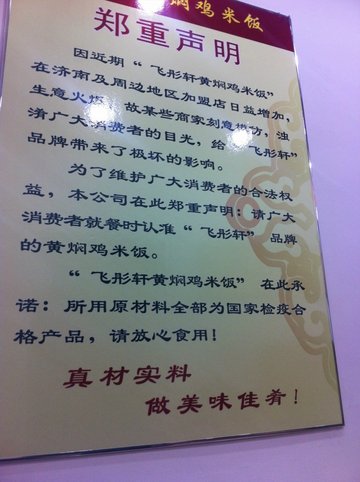 焖鸡米饭
郑重声明
因近期“飞彤轩黄焖鸡米饭”
在济南及周边地区加盟店日益增加，
生意火爆，故某些商家刻意模仿，混
淆广大消费者的目光，给“飞彤轩”
品牌带来了极坏的影响。
为了维护广大消费者的合法权
益，本公司在此郑重声明：请广大
消费者就餐时认准“飞彤轩”品牌
的黄焖鸡米饭。
“飞彤轩黄焖鸡米饭”在此承
诺：所用原材料全部为国家检疫合
格产品，请放心食用！
真材实料
做美味佳肴！